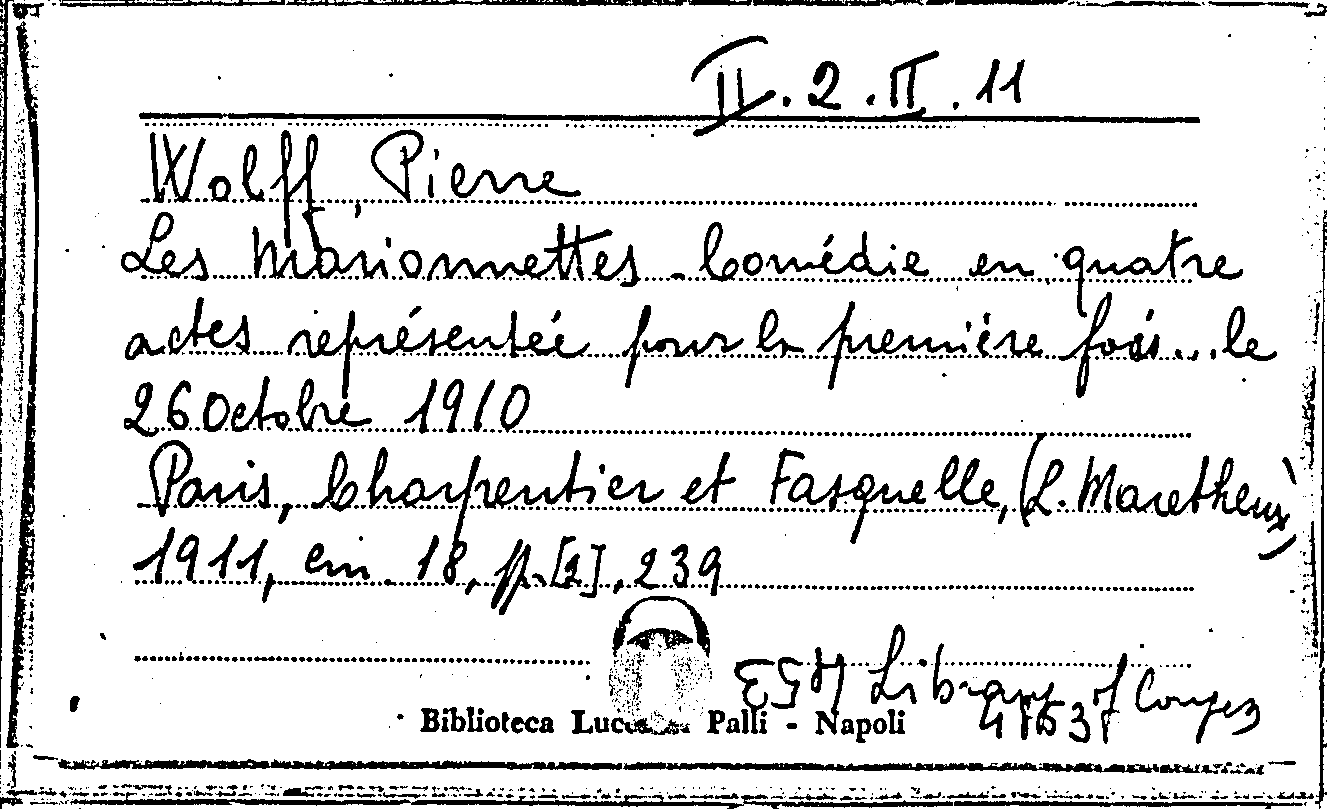 II.2.II.11
Wolff, Pierre
Les Marionnettes. Comédie en quatre
actes représentée pour la première fois...le
26 Octobre 1910
Paris, Charpentier et Fasquelle, (L. Maretheux)
1911, in. 18, pp. [2], 239
Library of
Biblioteca Palli - Napoli